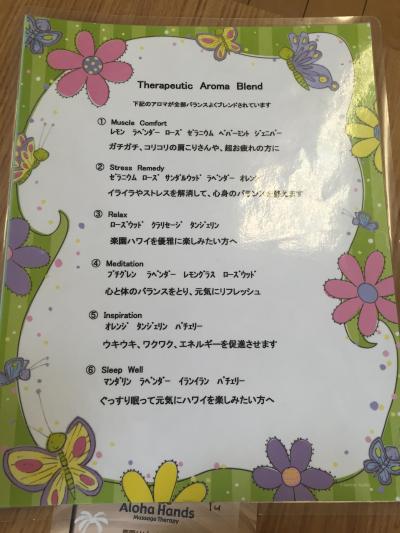 Therapeutic Aroma Blend
下記のアロマが全部バランスよくブレンドされています
① Muscle Comfort
レモン ラベンダー ローズ ゼラニウム ペパーミント ジュニパー
ガチガチ、コリコリの肩こりさんや、超お疲れの方に
② Stress Remedy
ゼラニウム ローズ サンダルウッド ラベンダー オレンジ
イライラやストレスを解消して、心身のバランスを整えます
③ Relax
ローズウッド クラリセージ タンジェリン
楽園ハワイを優雅に楽しみたい方へ
④ Meditation
プチグレン ラベンダー レモングラス ローズウッド
心と体のバランスをとり、元気にリフレッシュ
⑤ Inspiration
オレンジ タンジェリン パチェリー
ウキウキ、ワクワク、エネルギーを促進させます
⑥ Sleep Well
マンダリン ラベンダー イランイラン パチェリー
ぐっすり眠って元気にハワイを楽しみたい方へ
Aloha Hands
Massage Therapy